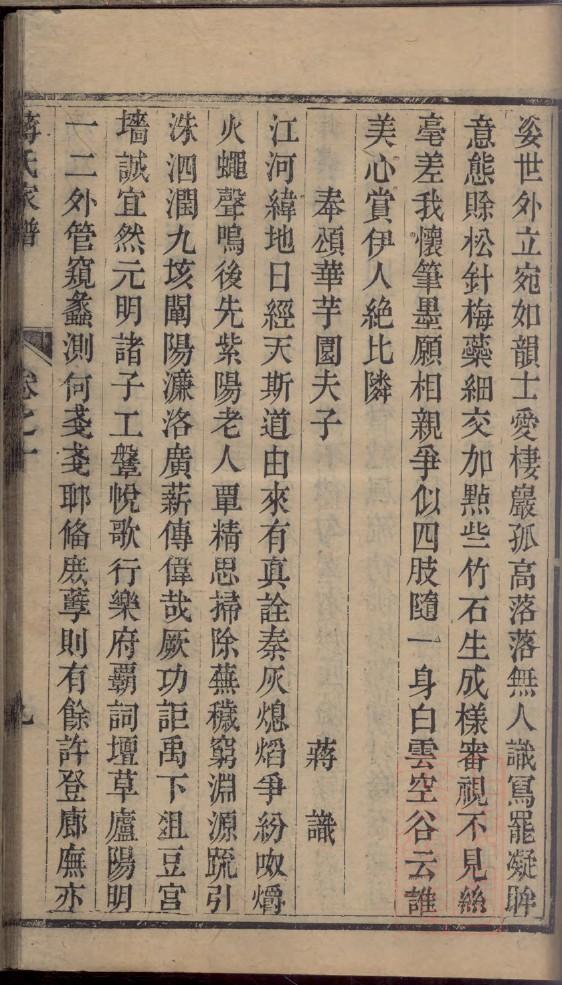 姿世外立宛如韻士愛棲巖孤高落落無人識寫罷凝眸
意態賒松針梅蘂細交加㸃些竹石生成樣審視不見絲
毫差我懷筆墨願相親爭似四肢隨一身白雲空谷云誰
美心賞伊人絶比隣
奉頌華芋園夫子
蔣識
江河緯地日經天斯道由來有真詮秦灰熄熖爭紛呶爝
火蠅聲鳴後先紫陽老人覃精思掃除蕪穢窮淵源䟽引
洙泗潤九垓閩陽濂洛廣薪傳偉哉厥功詎禹下俎豆宮
墻誠宜然元明諸子工鞶帨歌行樂府覇詞壇草廬陽明
一二外管窺蠡測何戔戔耶偹庻孽則有餘許登廊廡亦
蔣氏家譜
卷之十
九